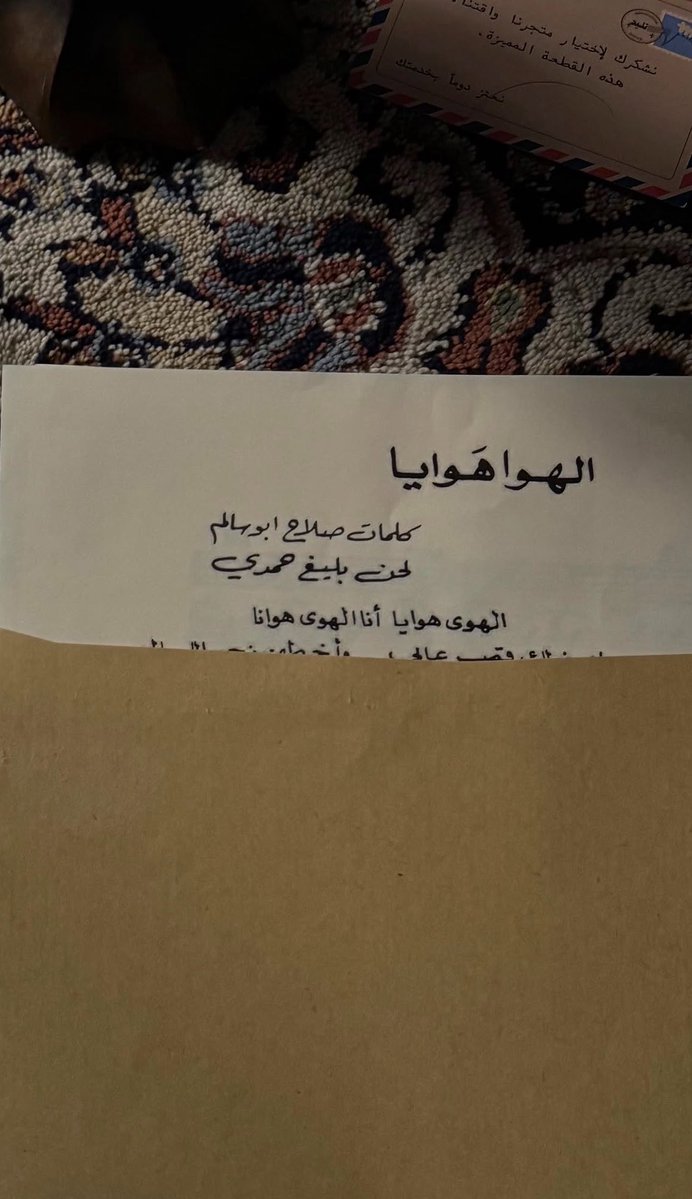 نشكرك لإختيار متجرنا واقتناء
هذه القطعة المميزة.
نعتز دوماً بخدمتك
الهوا هَوايا
كلمات صلاح ابو سالم
لحن بليغ حمدي
الهوى هوايا أنا الهوى هوانا
قصب عالي